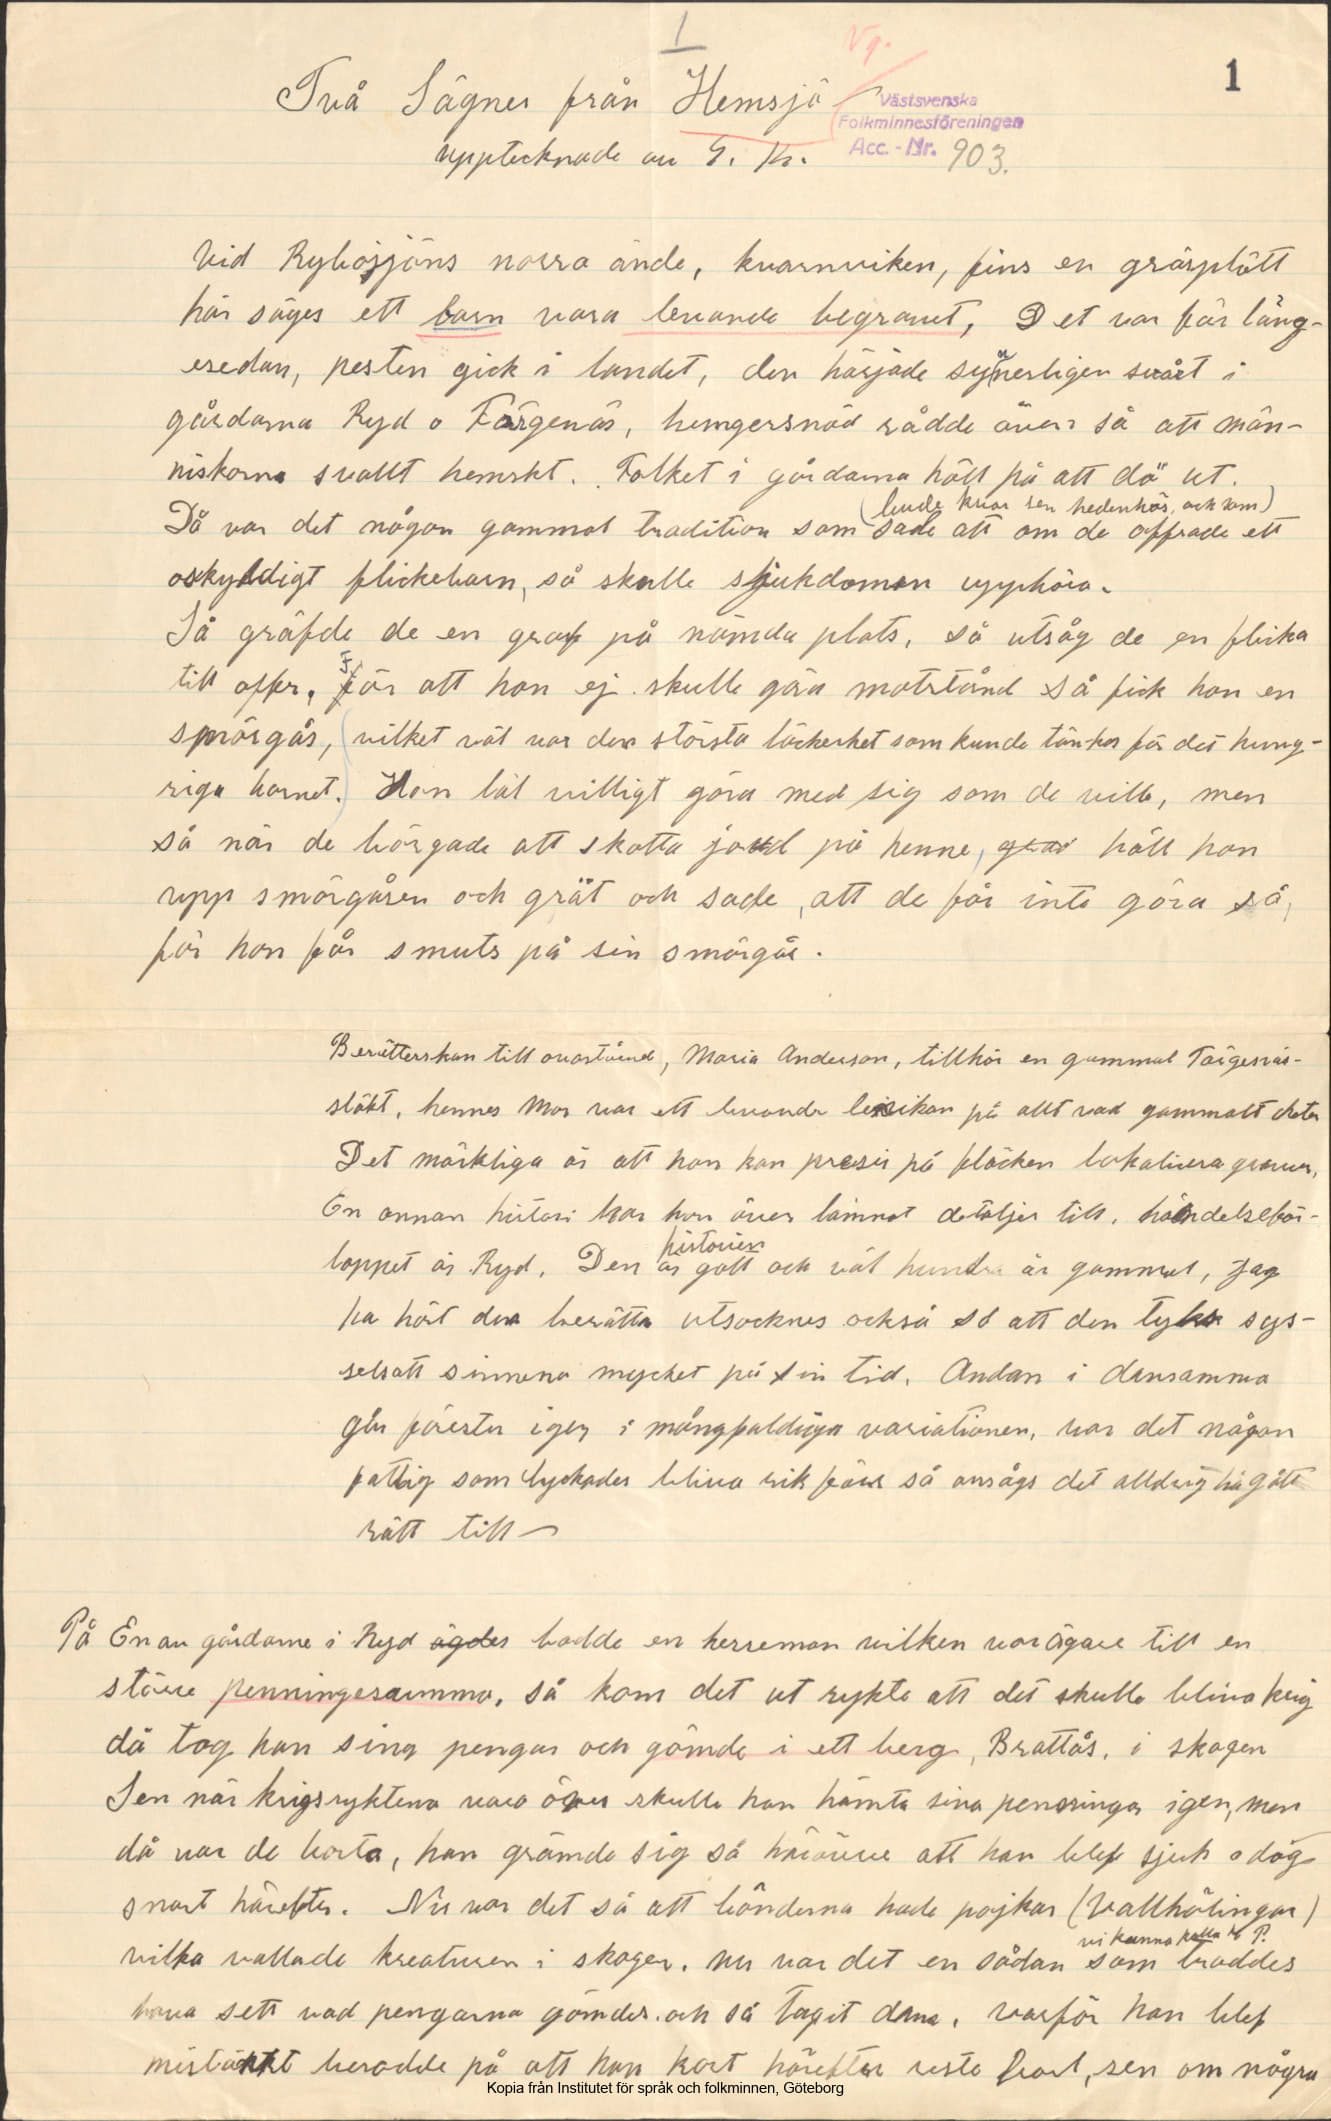 1
Vg.
1
Två Sägner från Hemsjö
Västsvenska
Folkminnesföreningen
Acc.-Nr. 903.
upptecknade av G. Kr.
Vid Rybosjöns norra ände, kvarnviken, fins en gräsplätt
här säges ett barn vara levande begravet, Det var för läng-
esedan, pesten gick i landet, den härjade synnerligen svårt i
gårdarna Ryd o Färgenäs, hungersnöd rådde även så att män-
niskorna svallt hemskt. Folket i gårdarna höll på att dö ut.
(levde kvar sen hedenhös, och som)
Då var det någon gammal tradition som sade att om de offrade ett
oskyldigt flickebarn, så skulle sjukdomen upphöra.
Så gräfde de en graf på nämda plats, så utsåg de en flicka
till offer. För att hon ej skulle göra motstånd så fick hon en
smörgås, (vilket väl var den största läckerhet som kunde tänkas för det hung-
riga barnet.) Hon lät villigt göra med sig som de ville, men
så när de börgade att skotta jord på henne, höll hon
upp smörgåsen och grät och sade, att de får inte göra så,
för hon får smuts på sin smörgås.
Berätterskan till ovanstående, Maria Anderson, tillhör en gammal Färgenäs-
släkt, hennes Mor var ett levande lexikon på allt vad gammalt
Det märkliga är att hon kan precis på fläcken lokalisera graven,
En annan histori har hon även lämnat detaljer till, händelseför-
loppet är Ryd. Den historien är gott och väl hundra år gammal, Jag
ha hört den berättas utsocknes också så att den tyks sys-
selsatt sinnena mycket på sin tid. Andan i densamma
går förresten igen i mångfaldiga variationer, var det någon
fattig som lyckades bliva rik förr så ansågs det alldrig ha gått
rätt till
På En av gårdarne i Ryd ägdes bodde en herreman vilken var ägare till en
större penningesumma, så kom det ut rykte att det skulle bliva krig
då tog han sina pengar och gömde i ett berg, Brattås, i skogen
Sen när krigsryktena vara över skulle han hämta sina penningar igen, men
då var de borta, han grämde sig så häröver att han blef sjuk o dog
snart härefter. Nu var det så att bönderna hade pojkar (Vallhölingar)
vi kunna kalla P.
vilka vallade kreaturen i skogen. nu var det en sådan som troddes
hava sett vad pengarna gömdes och så tagit dem, varför han blef
misstänkt berodde på att han kort härefter reste bort, sen om några
Kopia från Institutet för språk och folkminnen, Göteborg